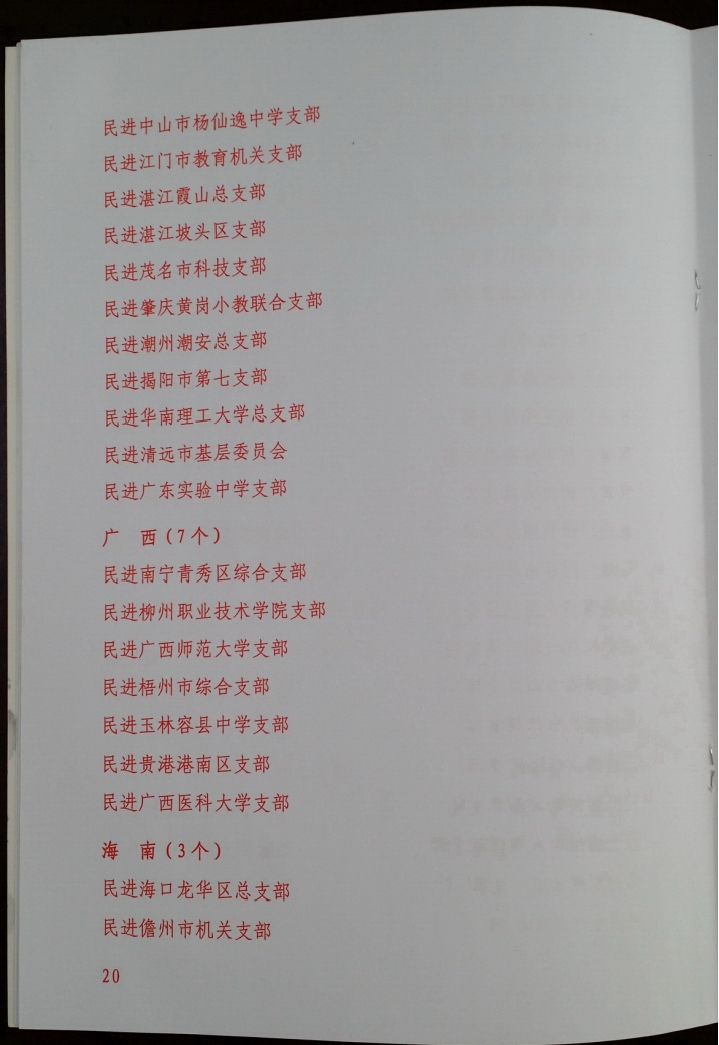 民进中山市杨仙逸中学支部
民进江门市教育机关支部
民进湛江霞山总支部
民进湛江坡头区支部
民进茂名市科技支部
民进肇庆黄岗小教联合支部
民进潮州潮安总支部
民进揭阳市第七支部
民进华南理工大学总支部
民进清远市基层委员会
民进广东实验中学支部
广 西(7个)
民进南宁青秀区综合支部
民进柳州职业技术学院支部
民进广西师范大学支部
民进梧州市综合支部
民进玉林容县中学支部
民进贵港港南区支部
民进广西医科大学支部
海 南(3个)
民进海口龙华区总支部
民进儋州市机关支部
20